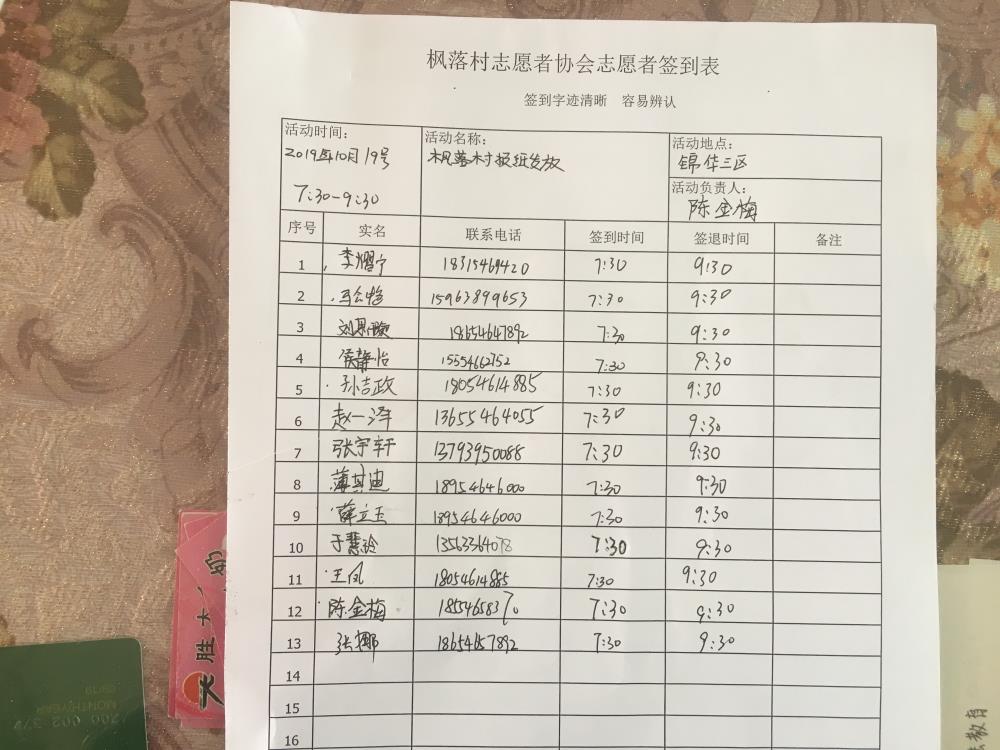 枫落村志愿者协会志愿者签到表
签到字迹清晰 容易辨认
活动时间: 活动名称: 活动地点:
2019年10月19号 枫落村报纸发放 锦华三区
7:30-9:30 活动负责人:
陈金梅
序号 实名 联系电话 签到时间 签退时间 备注
1 李熠宁 18315469420 7:30 9:30
2 15963899653 7:30 9:30
3 18654647892 7:30 9:30
4 侯静怡 15554662752 7:30 9:30
5 孙吉政 18054614885 7:30 9:30
6 赵一泽 13655464055 7:30 9:30
7 张宇轩 13793950088 7:30 9:30
8 薄其迪 18954646000 7:30 9:30
9 薛立玉 18954646000 7:30 9:30
10 于慧玲 13563364078 7:30 9:30
11 王凤 18054614885 7:30 9:30
12 陈金梅 7:30 9:30
13 张娜 18654657892 7:30 9:30
14
15
16
胜大
MONTH/YEAR
09/19
教育